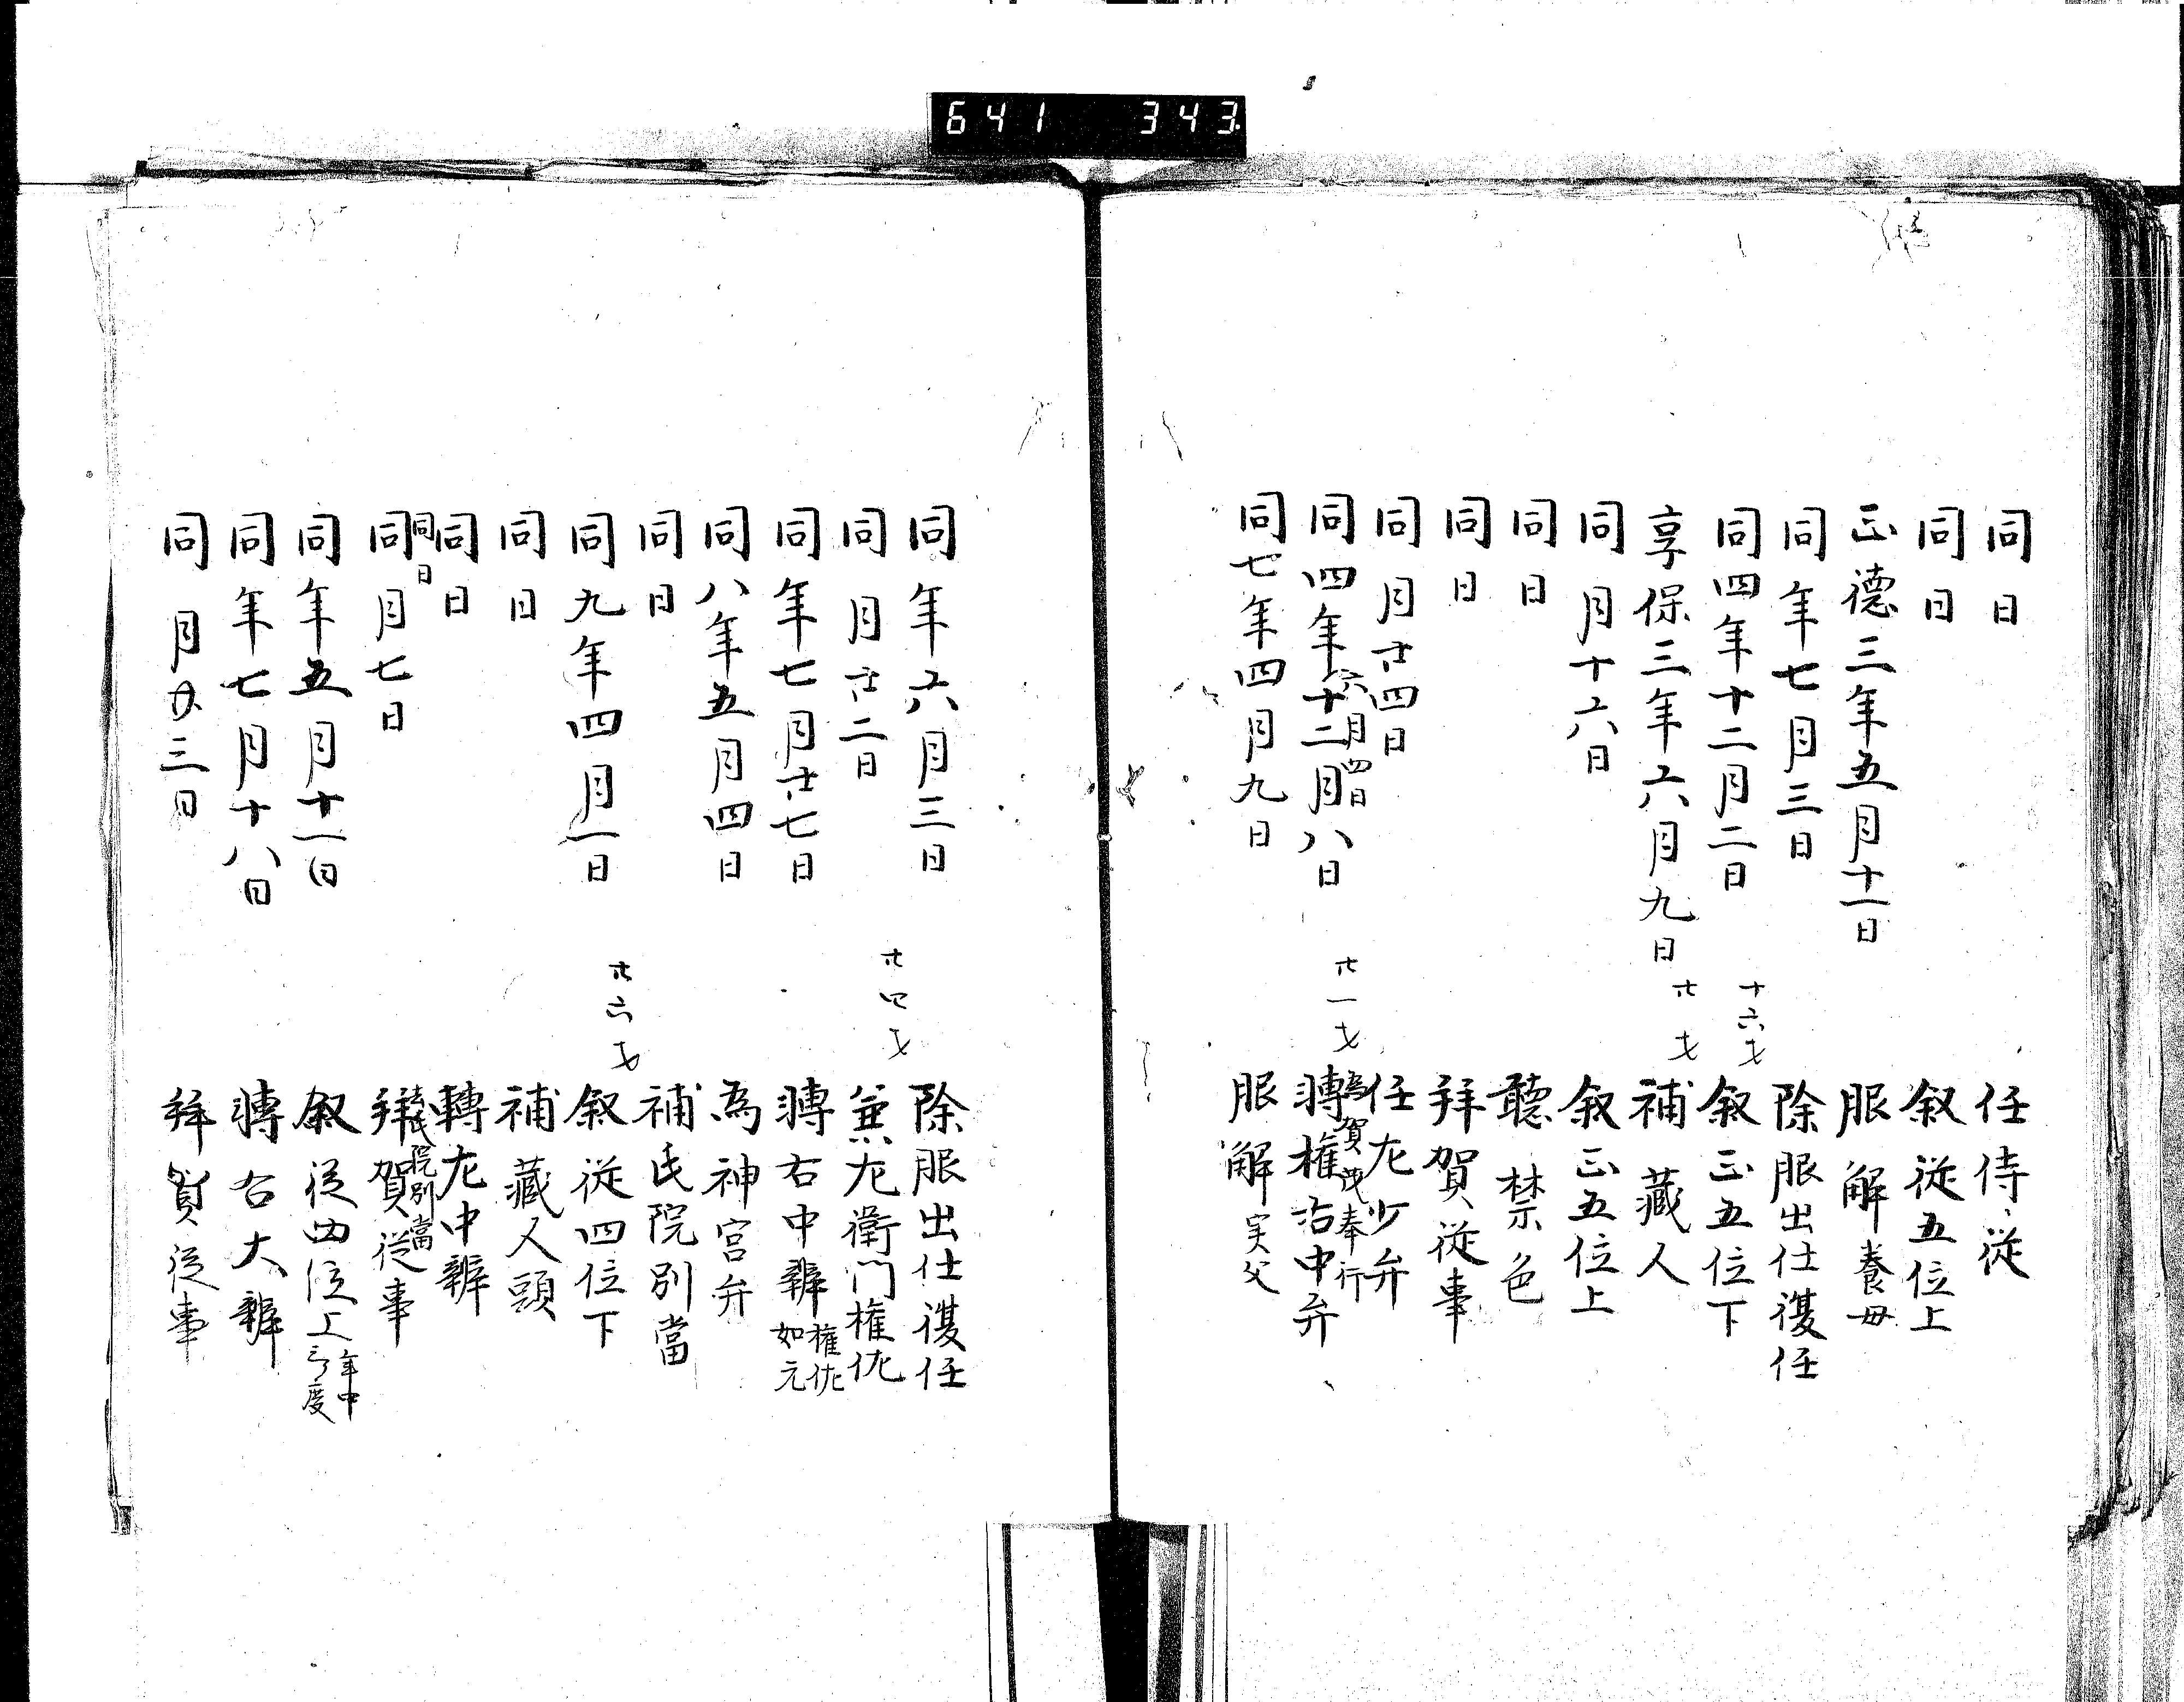 641 343
同日 任侍従
同日 叙従五位上
正徳三年五月十一日 服解 養母
同年七月三日 除服出仕復任
同四年十二月二日 十六才 叙正五位下
享保三年六月九日 廿才 補藏人
同月十六日 叙正五位上
同日 聴禁色
同日 拝賀従事
同月廿四日 任左少弁
六月四日 為賀茂奉行
同四年十二月八日 廿一才 轉権右中弁
同七年四月九日 服解 実父
同年六月三日 除服出仕復任
同月廿二日 廿四才 兼左衛門権佐
同年七月廿七日 轉右中辨 権佐如元
同八年五月四日 為神宮弁
同日 補氏院別當
同九年四月一日 廿六才 叙従四位下
同日 補藏人頭
同日 轉左中辨
同日 氏院別當
同月七日 拝賀従事
同年五月十一日 叙従四位上 年中 度
同年七月十八日 轉右大辨
同月廿三日 拝賀従事